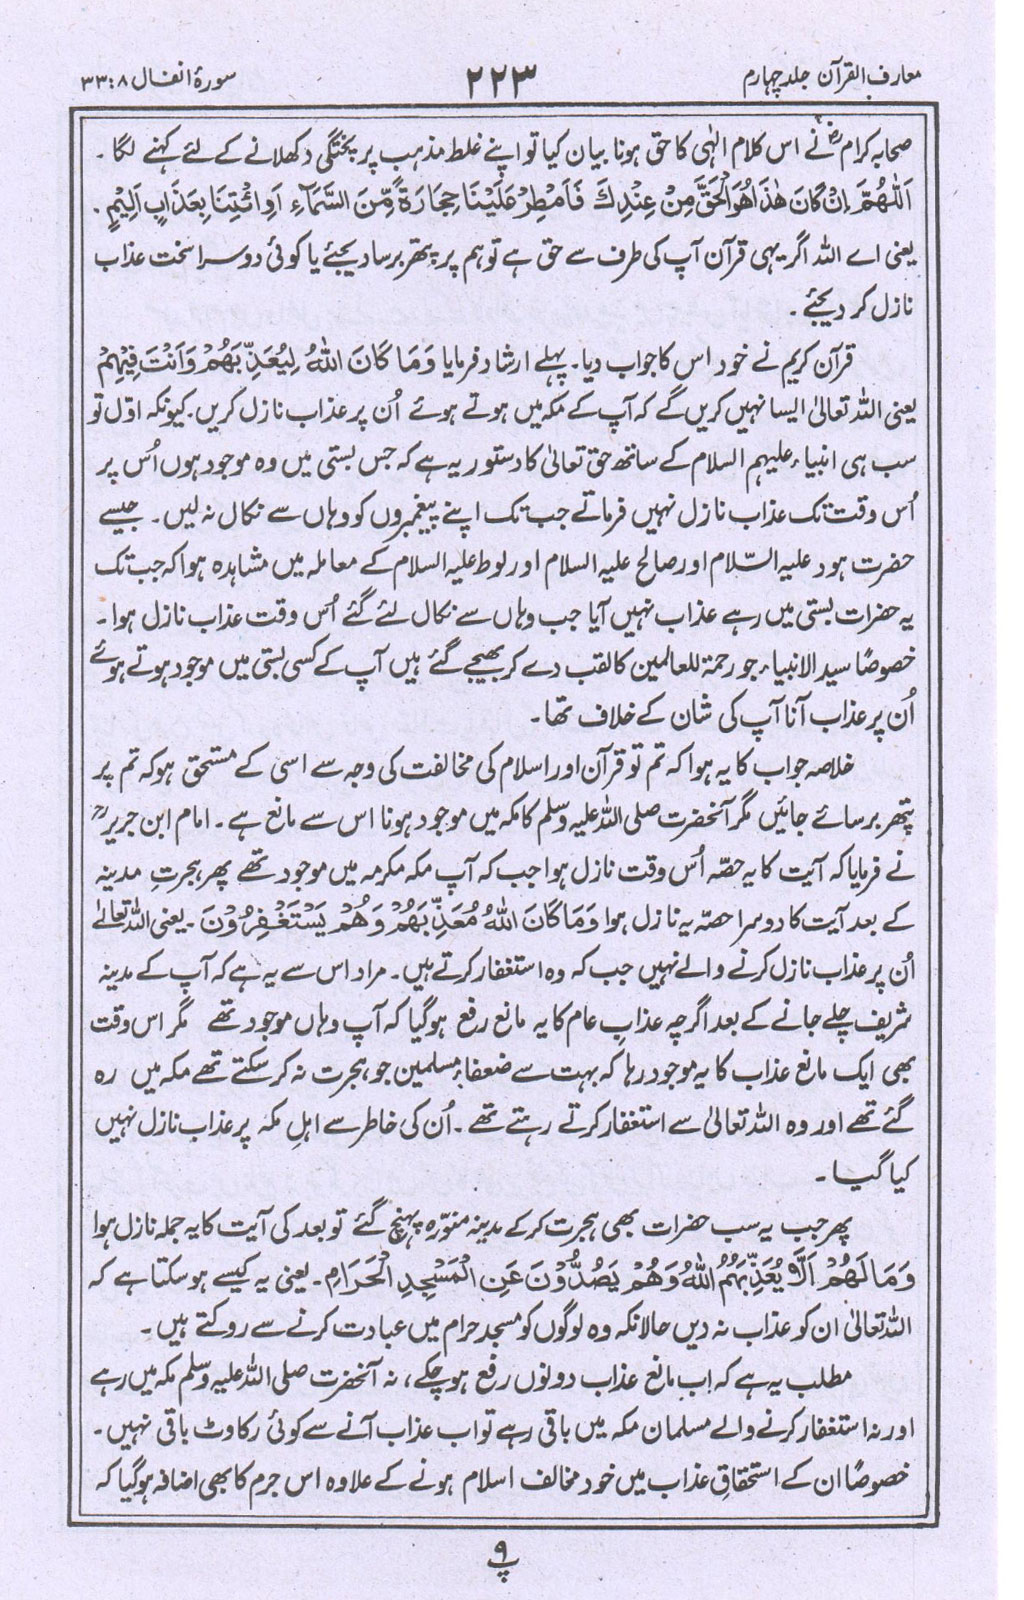 معارف القرآن جلد چہارم
۲۲۳
سورۂ انفال ۸ : ۳۳
صحابہ کرامؓ نے اس کلام الٰہی کا حق ہونا بیان کیا تو اپنے غلط مذہب پر پختگی دکھلانے کے لئے کہنے لگا ۔
اَللّٰهُمَّ اِنْ كَانَ هٰذَا هُوَ الْحَقَّ مِنْ عِنْدِكَ فَاَمْطِرْ عَلَيْنَا حِجَارَةً مِّنَ السَّمَآءِ اَوِ ائْتِنَا بِعَذَابٍ اَلِيْمٍ ۔
یعنی اے اللہ اگر یہی قرآن آپ کی طرف سے حق ہے تو ہم پر پتھر برسا دیجئے یا کوئی دوسرا سخت عذاب
نازل کر دیجئے ۔
قرآن کریم نے خود اس کا جواب دیا۔ پہلے ارشاد فرمایا وَمَا كَانَ اللّٰهُ لِيُعَذِّبَهُمْ وَاَنْتَ فِيْهِمْ
یعنی اللہ تعالیٰ ایسا نہیں کریں گے کہ آپ کے مکہ میں ہوتے ہوئے اُن پر عذاب نازل کریں۔ کیونکہ اوّل تو
سب ہی انبیاء علیہم السلام کے ساتھ حق تعالیٰ کا دستور یہ ہے کہ جس بستی میں وہ موجود ہوں اُس پر
اُس وقت تک عذاب نازل نہیں فرماتے جب تک اپنے پیغمبروں کو وہاں سے نکال نہ لیں۔ جیسے
حضرت ہود علیہ السّلام اور صالح علیہ السلام اور لوط علیہ السلام کے معاملہ میں مشاہدہ ہوا کہ جب تک
یہ حضرات بستی میں رہے عذاب نہیں آیا جب وہاں سے نکال لئے گئے اُس وقت عذاب نازل ہوا ۔
خصوصًا سید الانبیاء جو رحمۃ للعالمین کا لقب دے کر بھیجے گئے ہیں آپ کے کسی بستی میں موجود ہوتے ہوئے
اُن پر عذاب آنا آپ کی شان کے خلاف تھا۔
خلاصہ جواب کا یہ ہوا کہ تم تو قرآن اور اسلام کی مخالفت کی وجہ سے اسی کے مستحق ہو کہ تم پر
پتھر برسائے جائیں مگر آنحضرت صلی اللہ علیہ وسلم کا مکہ میں موجود ہونا اس سے مانع ہے۔ امام ابن جریرؒ
نے فرمایا کہ آیت کا یہ حصّہ اُس وقت نازل ہوا جب کہ آپ مکہ مکرمہ میں موجود تھے پھر ہجرتِ مدینہ
کے بعد آیت کا دوسرا حصّہ یہ نازل ہوا وَمَا كَانَ اللّٰهُ مُعَذِّبَهُمْ وَهُمْ يَسْتَغْفِرُوْنَ ۔ یعنی اللہ تعالےٰ
اُن پر عذاب نازل کرنے والے نہیں جب کہ وہ استغفار کرتے ہیں۔ مراد اس سے یہ ہے کہ آپ کے مدینہ
شریف چلے جانے کے بعد اگرچہ عذابِ عام کا یہ مانع رفع ہوگیا کہ آپ وہاں موجود تھے مگر اس وقت
بھی ایک مانع عذاب کا یہ موجود رہا کہ بہت سے ضعفاءِ مسلمین جو ہجرت نہ کر سکتے تھے مکہ میں رہ
گئے تھے اور وہ اللہ تعالیٰ سے استغفار کرتے رہتے تھے ۔ اُن کی خاطر سے اہلِ مکہ پر عذاب نازل نہیں
کیا گیا ۔
پھر جب یہ سب حضرات بھی ہجرت کرکے مدینہ منوّرہ پہنچ گئے تو بعد کی آیت کا یہ جملہ نازل ہوا
وَمَا لَهُمْ اَلَّا يُعَذِّبَهُمُ اللّٰهُ وَهُمْ يَصُدُّوْنَ عَنِ الْمَسْجِدِ الْحَرَامِ ۔ یعنی یہ کیسے ہوسکتا ہے کہ
اللہ تعالیٰ ان کو عذاب نہ دیں حالانکہ وہ لوگوں کو مسجد حرام میں عبادت کرنے سے روکتے ہیں ۔
مطلب یہ ہے کہ اب مانع عذاب دونوں رفع ہوچکے، نہ آنحضرت صلی اللہ علیہ وسلم مکہ میں رہے
اور نہ استغفار کرنے والے مسلمان مکہ میں باقی رہے تو اب عذاب آنے سے کوئی رکاوٹ باقی نہیں۔
خصوصًا ان کے استحقاقِ عذاب میں خود مخالف اسلام ہونے کے علاوہ اس جرم کا بھی اضافہ ہوگیا کہ
۹
پ